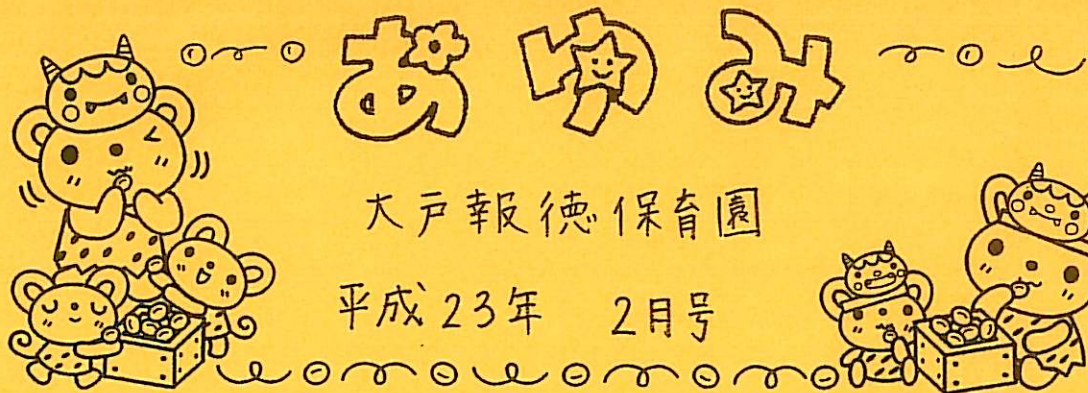 あゆみ
大戸報徳保育園
平成23年 2月号